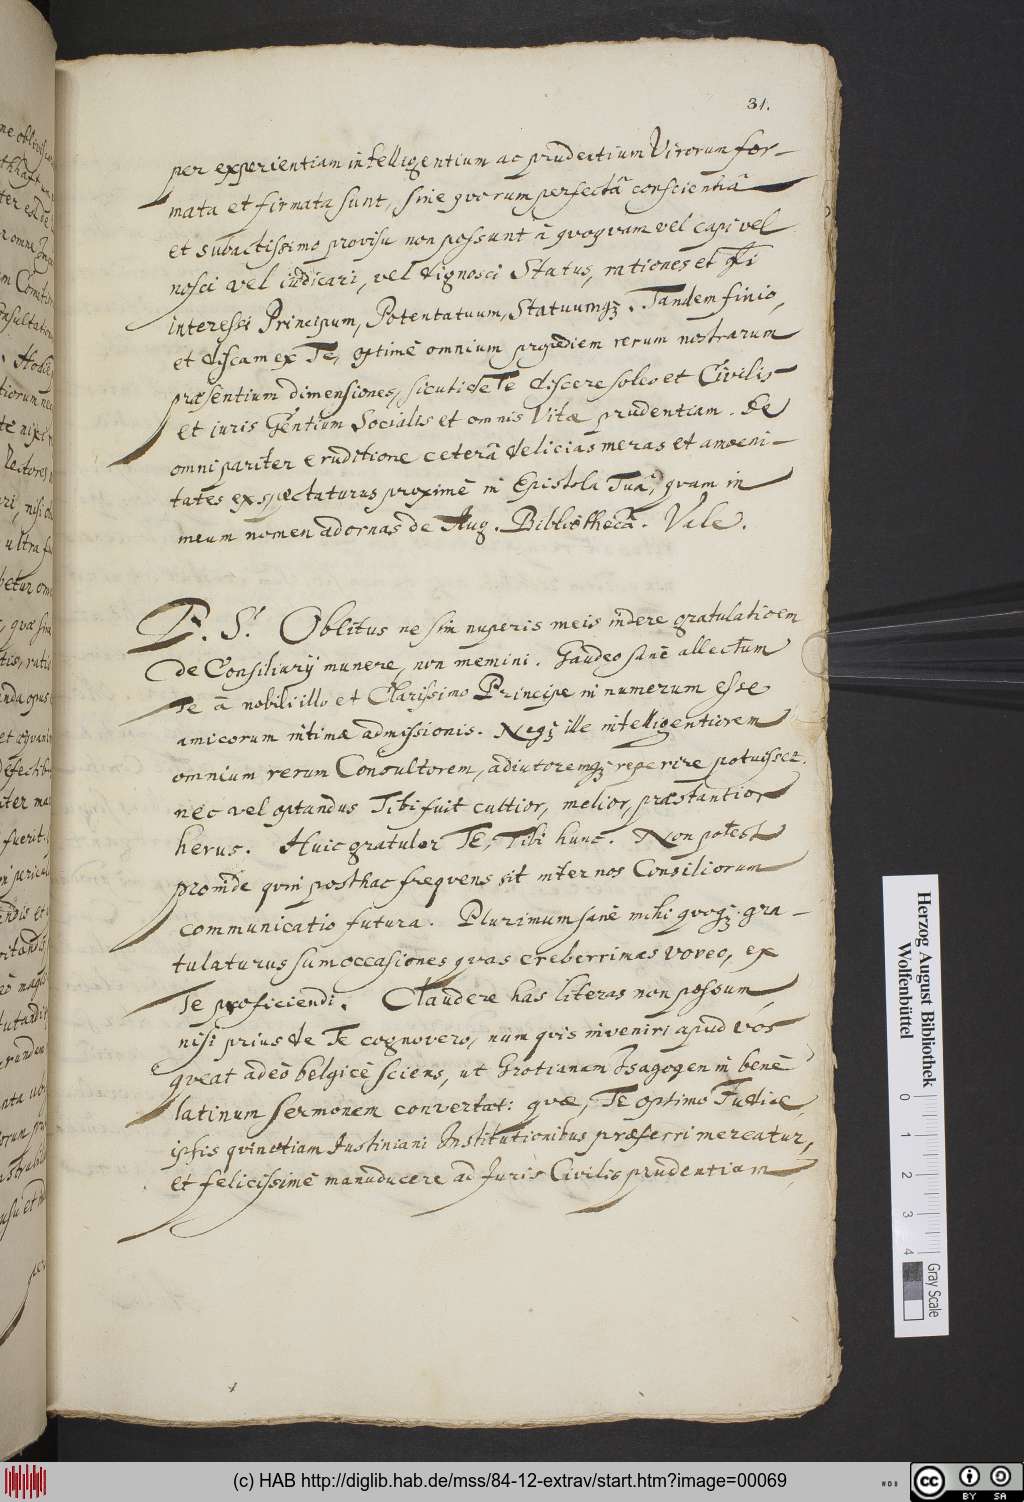 31.
per experientiam intelligentium ac prudentium Virorum for-
mata et firmata sunt, sine quorum perfectâ conscientiâ
et subactissimo provisu non possunt â quoquam vel capi vel
nosci vel iudicari, vel dignosci Status, rationes et
interesse Principum, Potentatuum, Statuumq;. Tandem finio,
et discam ex Te, optimè omnium propediem rerum nostrarum
præsentium dimensiones, sicuti de Te discere soleo et Civilis
et iuris Gentium Socialis et omnis Vitæ prudentiam. De
omni pariter eruditione ceterâ delicias meras et amoeni-
tates exspectaturus proximè in Epistola Tuâ, quam in
meum nomen adornas de Aug. Bibliothecâ. Vale.
P. S. Oblitus ne sim nuperis meis indere gratulatioem
de Consiliarij munere, non memini. Gaudeo sanè allectum
Te â nobili illo et Clarissimo Principe in numerum esse
amicorum intimæ admissionis. Neq; ille intelligentiorem
omnium rerum Consultorem, adiutoremq; reperire potuisset.
nec vel optandus Tibi fuit cultior, melior, præstantior
herus. Huic gratulor TE, Tibi hunc. Non potest
proinde quin posthac frequens sit inter nos Consiliorum
communicatio futura. Plurimum sanè mihi quoq; gra-
tulaturus sum occasiones quas creberrimas voveo, ex
Te proficiendi. Claudere has literas non possum,
nisi prius de Te cognovero, num quis inveniri apud vos
queat adeò belgicè sciens, ut Grotianam Isagogen in benè
latinum sermonem convertat: quæ, Te optimo Judice,
ipsis quinetiam Justiniani Institutionibus præferri mereatur,
et felicissimè manuducere ad Juris Civilis prudentiam
Herzog August Bibliothek
Wolfenbüttel
0 1 2 3 4
Gray Scale
(c) HAB http://diglib.hab.de/mss/84-12-extrav/start.htm?image=00069
cc BY SA